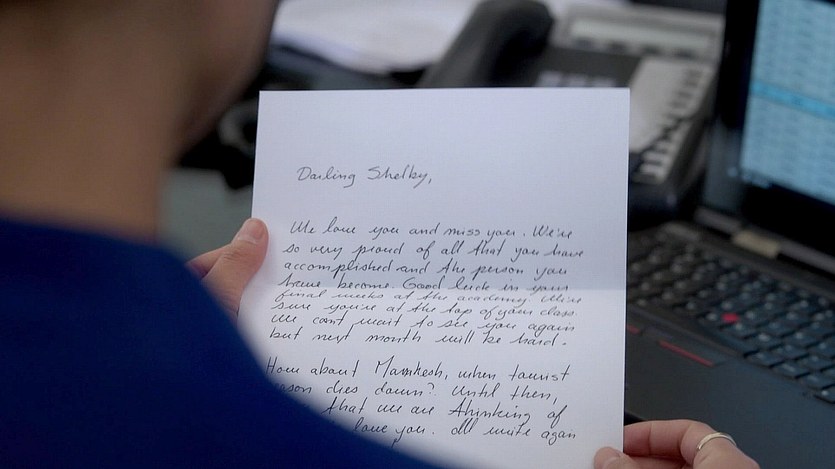 Darling Shelby,
We love you and miss you. We're
so very proud of all that you have
accomplished and the person you
have become. Good luck in your
final weeks at the academy. We're
sure you're at the top of your class.
We cant wait to see you again
but next month will be hard.
How about Marrkesh, when tourist
dies down? Until then,
that we are thinking of
love you. I'll write again